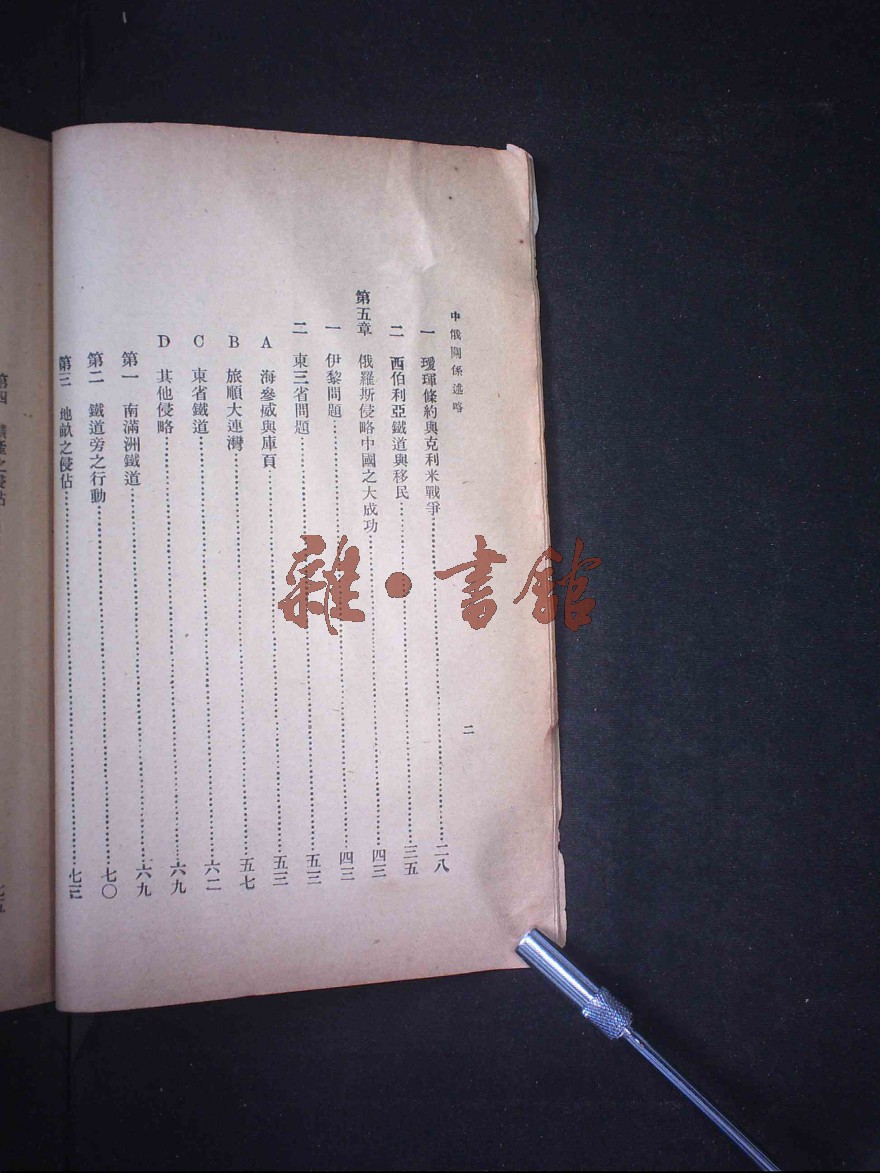 中俄關係述略
二
一 瑷琿條約與克利米戰爭……二八
二 西伯利亞鐵道與移民……三五
第五章 俄羅斯侵略中國之大成功……四三
一 伊黎問題……四三
二 東三省問題……五三
A 海參威與庫頁……五三
B 旅順大連灣……五七
C 東省鐵道……六二
D 其他侵略……六九
第一 南滿洲鐵道……六九
第二 鐵道旁之行動……七〇
第三 地畝之侵佔……七三
第四
雜·書館